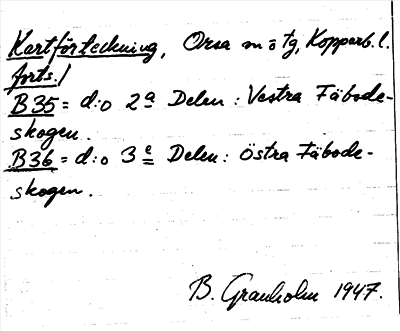 Kartförteckning, Orsa m ö tg, Kopparb. l.
forts./
B35 = d:o 2a Delen: Vestra Fäbode-
skogen.
B36 = d:o 3e Delen: Östra Fäbode-
skogen.
B. Granholm 1947.